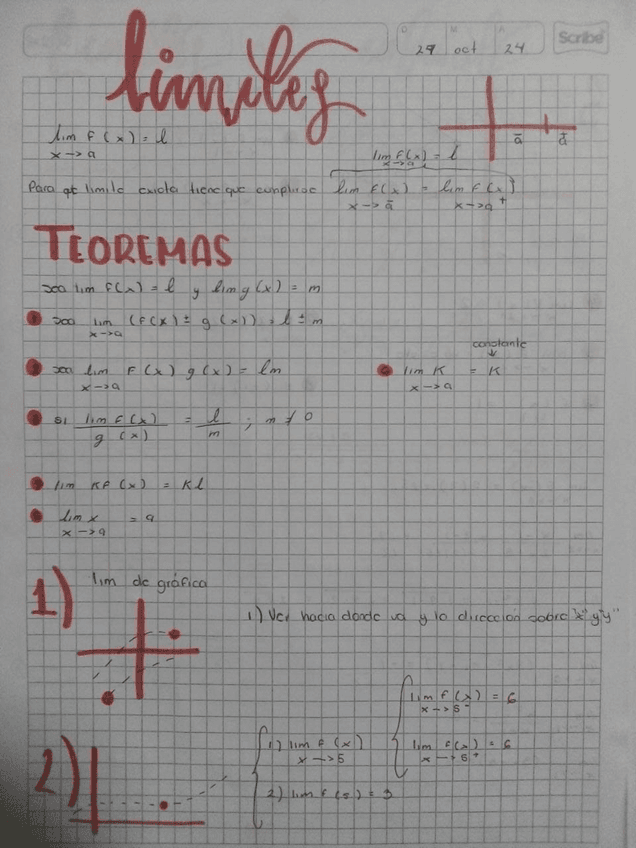 29 oct 24
Scribe
limites
lim f(x) = l
x→a
ā ā
lim f(x) = l
x→a
Para qe limite exista tiene que cumplirse lim f(x) = lim f(x)
x→a⁻ x→a⁺
TEOREMAS
sea lim f(x) = l y lim g(x) = m
sea lim (f(x) ± g(x)) = l ± m
x→a
sea lim f(x) g(x) = lm
x→a
constante
lim K = K
x→a
si lim f(x) / g(x) = l / m ; m ≠ 0
lim Kf(x) = Kl
lim x = a
x→a
1) lim de gráfica
1) Ver hacia donde va y la dirección sobre "x" y "y"
2)
1) lim f(x)
x→5
lim f(x) = 6
x→5⁻
lim f(x) = 6
x→5⁺
2) lim f(5) = 3